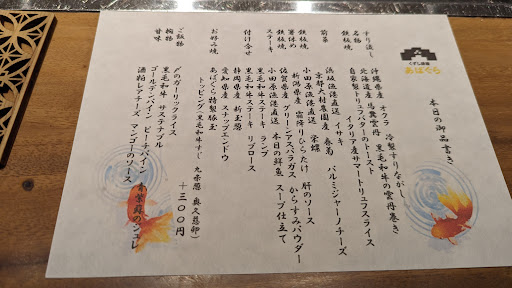 くずし鉄板
あばぐら
本日の御品書き
すり流し 沖縄県産 オクラ 冷製すりながし
名物 北海道産 馬糞雲丹 黒毛和牛の雲丹巻き
鉄板焼 自家製トリュフバターのトースト
イタリア産サマートリュフスライス
前菜 浜坂漁港直送 イサキ
京都大村農園産 春菊 パルミジャーノチーズ
鉄板焼 小田原漁港直送 栄螺
新潟県産 霜降りひらたけ 肝のソース
箸休め 佐賀県産 グリーンアスパラガス からすみパウダー
鉄板焼 小田原漁港直送 本日の鮮魚 スープ仕立て
ステーキ 黒毛和牛ステーキ ランプ
黒毛和牛ステーキ リブロース
付け合せ 静岡県産 新玉葱
愛知県産 スナップエンドウ
お好み焼 あばぐら特製豚玉
トッピング(黒毛和牛すじ 九条葱 奥久慈卵) +300円
ご飯物 〆のガーリックライス
鞠物 黒毛和牛 サステナブル
甘味 ゴールデンパイン ピーチパイン 青紫蘇のジュレ
酒粕レアチーズ マンゴーのソース